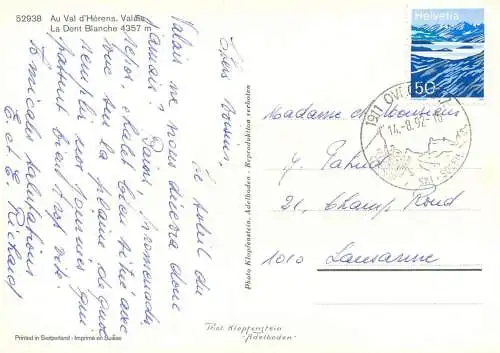 52938 Au Val d'Hérens, Valais
La Dent Blanche 4357 m
Chers Voisins,
Le soleil du
Valais ne nous laissera donc
jamais! Daim, promenades
repos, chalet bien situé avec
vue sur la plaine de quoi
remplir nos journées qui
passent bien trop vite.
Amicales salutations
E. et E. Richard
Photo Klopfenstein, Adelboden - Reproduktion verboten
Helvetia
50
1911 OVRONNAZ
14.-8.92
SKI
Madame et Monsieur
J. Pahud
21, Champ Rond
1010 Lausanne
Phot. Klopfenstein
Adelboden
Printed in Switzerland - Imprimé en Suisse